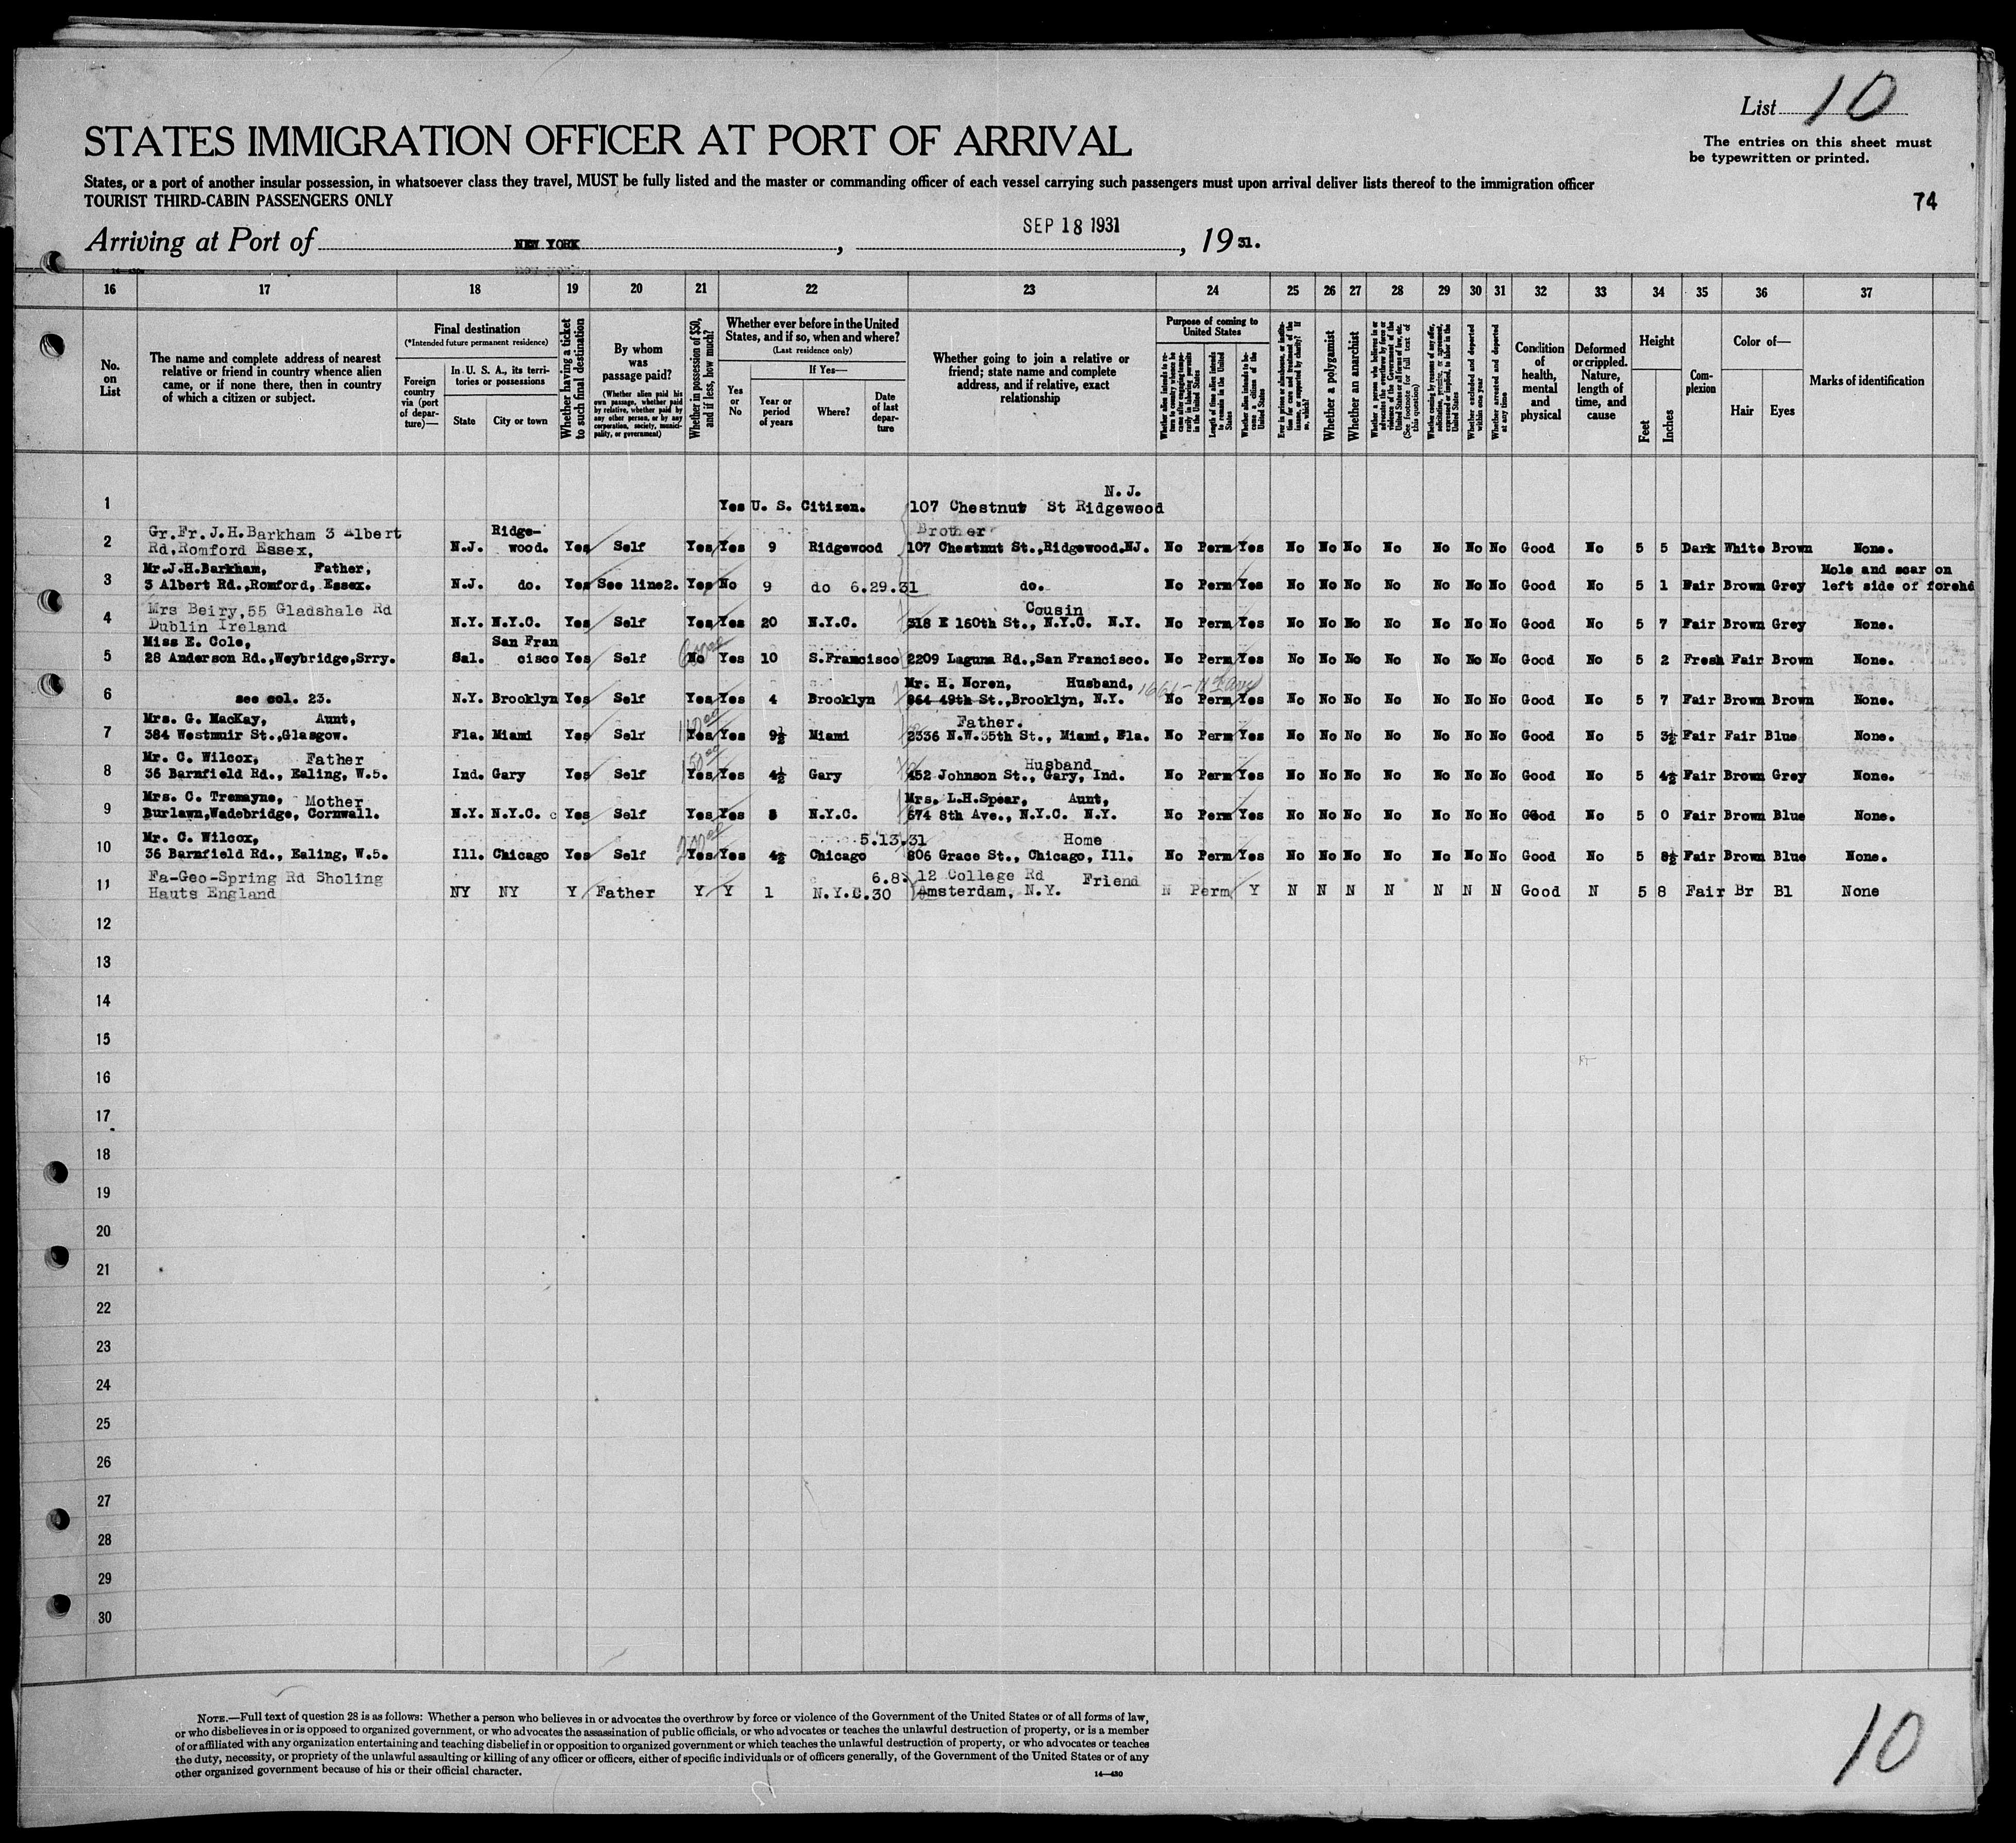 List 10
STATES IMMIGRATION OFFICER AT PORT OF ARRIVAL
The entries on this sheet must
be typewritten or printed.
States, or a port of another insular possession, in whatsoever class they travel, MUST be fully listed and the master or commanding officer of each vessel carrying such passengers must upon arrival deliver lists thereof to the immigration officer
TOURIST THIRD-CABIN PASSENGERS ONLY
74
Arriving at Port of NEW YORK, SEP 18 1931, 19 31.
16 17 18 19 20 21 22 23 24 25 26 27 28 29 30 31 32 33 34 35 36 37
No. on List
The name and complete address of nearest
relative or friend in country whence alien
came, or if none there, then in country
of which a citizen or subject.
Final destination
(*Intended future permanent residence)
Foreign country via (port of departure)—
In U. S. A., its territories or possessions
State City or town
Whether having a ticket to such final destination
By whom was passage paid?
(Whether alien paid his own passage, whether paid by relative, whether paid by any other person, or by any corporation, society, municipality, or government)
Whether in possession of $50, and if less, how much?
Whether ever before in the United
States, and if so, when and where?
(Last residence only)
Yes or No
If Yes—
Year or period of years
Where?
Date of last departure
Whether going to join a relative or
friend; state name and complete
address, and if relative, exact
relationship
Purpose of coming to
United States
Length of time alien intends to remain in the United States
Whether alien intends to become a citizen of the United States
Whether a polygamist
Whether an anarchist
(See footnote for full text of this question)
Whether excluded and deported within one year
Whether arrested and deported at any time
Condition of health, mental and physical
Deformed or crippled. Nature, length of time, and cause
Height
Feet Inches
Complexion
Color of—
Hair Eyes
Marks of identification
1 Yes U. S. Citizen. 107 Chestnut St Ridgewood N. J.
2 Gr.Fr.J.H.Barkham 3 Albert
Rd.Romford Essex, N.J. Ridge-wood. Yes Self Yes Yes 9 Ridgewood Brother 107 Chestnut St.,Ridgewood.NJ. No Perm Yes No No No No No No No Good No 5 5 Dark White Brown None.
3 Mr.J.H.Barkham, Father,
3 Albert Rd.,Romford, Essex. N.J. do. Yes See line2. Yes No 9 do 6.29.31 do. No Perm Yes No No No No No No No Good No 5 1 Fair Brown Grey Mole and scar on left side of forehd
4 Mrs Beiry,55 Gladshale Rd
Dublin Ireland N.Y. N.Y.C. Yes Self Yes Yes 20 N.Y.C. Cousin 318 E 160th St., N.Y.C. N.Y. No Perm Yes No No No No No No No Good No 5 7 Fair Brown Grey None.
5 Miss E. Cole,
28 Anderson Rd.,Weybridge,Srry. Sal. San Fran cisco Yes Self No Yes 10 S.Francisco 2209 Laguna Rd.,San Francisco. No Perm Yes No No No No No No No Good No 5 2 Fresh Fair Brown None.
6 see col. 23. N.Y. Brooklyn Yes Self Yes Yes 4 Brooklyn Mr. H. Noren, Husband, 864 49th St.,Brooklyn, N.Y. No Perm Yes No No No No No No No Good No 5 7 Fair Brown Brown None.
7 Mrs. G. MacKay, Aunt,
384 Westmuir St.,Glasgow. Fla. Miami Yes Self Yes Yes 9½ Miami Father. 2336 N.W.35th St., Miami, Fla. No Perm Yes No No No No No No No Good No 5 3½ Fair Fair Blue None.
8 Mr. C. Wilcox, Father
36 Barnfield Rd., Ealing, W.5. Ind. Gary Yes Self 150.00 Yes Yes 4½ Gary Husband 452 Johnson St., Gary, Ind. No Perm Yes No No No No No No No Good No 5 4½ Fair Brown Grey None.
9 Mrs. C. Tremayne, Mother
Burlawn,Wadebridge, Cornwall. N.Y. N.Y.C. Yes Self Yes Yes N.Y.C. Mrs. L.H.Spear, Aunt, 674 8th Ave., N.Y.C. N.Y. No Perm Yes No No No No No No No Good No 5 0 Fair Brown Blue None.
10 Mr. C. Wilcox,
36 Barnfield Rd., Ealing, W.5. Ill. Chicago Yes Self 200.00 Yes Yes 4½ Chicago 5.13.31 Home 806 Grace St., Chicago, Ill. No Perm Yes No No No No No No No Good No 5 8½ Fair Brown Blue None.
11 Fa-Geo-Spring Rd Sholing
Hauts England NY NY Y Father Y Y 1 N.Y.C. 6.8.30 12 College Rd Friend Amsterdam, N.Y. N Perm Y N N N N N N N Good N 5 8 Fair Br Bl None
12
13
14
15
16
17
18
19
20
21
22
23
24
25
26
27
28
29
30
NOTE.—Full text of question 28 is as follows: Whether a person who believes in or advocates the overthrow by force or violence of the Government of the United States or of all forms of law,
or who disbelieves in or is opposed to organized government, or who advocates the assassination of public officials, or who advocates or teaches the unlawful destruction of property, or is a member
of or affiliated with any organization entertaining and teaching disbelief in or opposition to organized government or which teaches the unlawful destruction of property, or who advocates or teaches
the duty, necessity, or propriety of the unlawful assaulting or killing of any officer or officers, either of specific individuals or of officers generally, of the Government of the United States or of any
other organized government because of his or their official character.
14—430
10